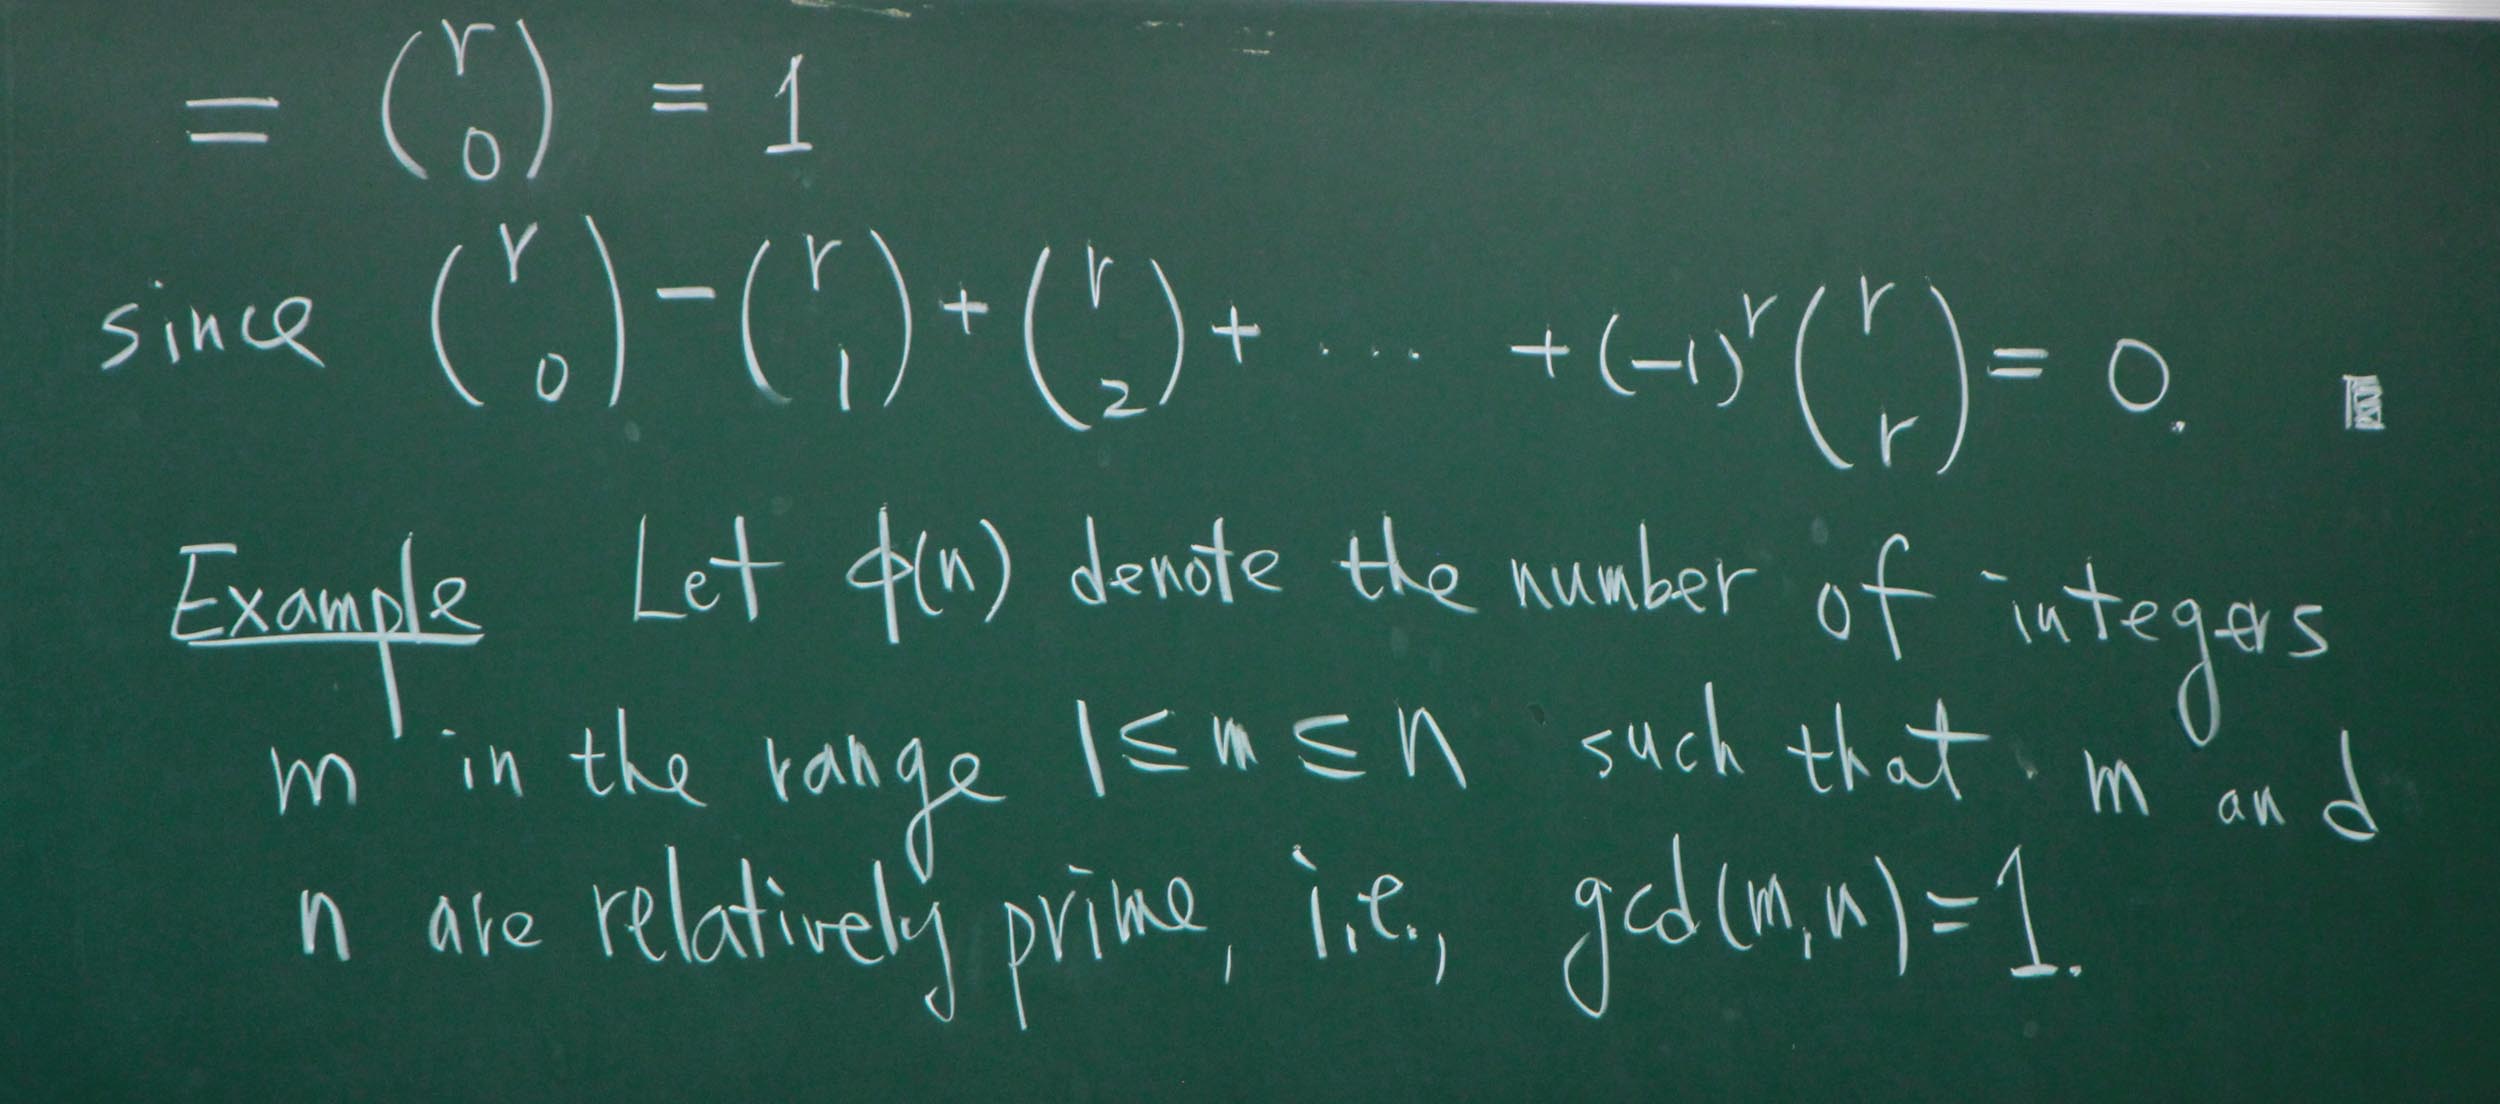 = (r 0) = 1
since (r 0) - (r 1) + (r 2) + .... + (-1)^r (r r) = 0.
Example Let ϕ(n) denote the number of integers
m in the range 1 ≤ m ≤ n such that m and
n are relatively prime, i.e., gcd(m,n)=1.